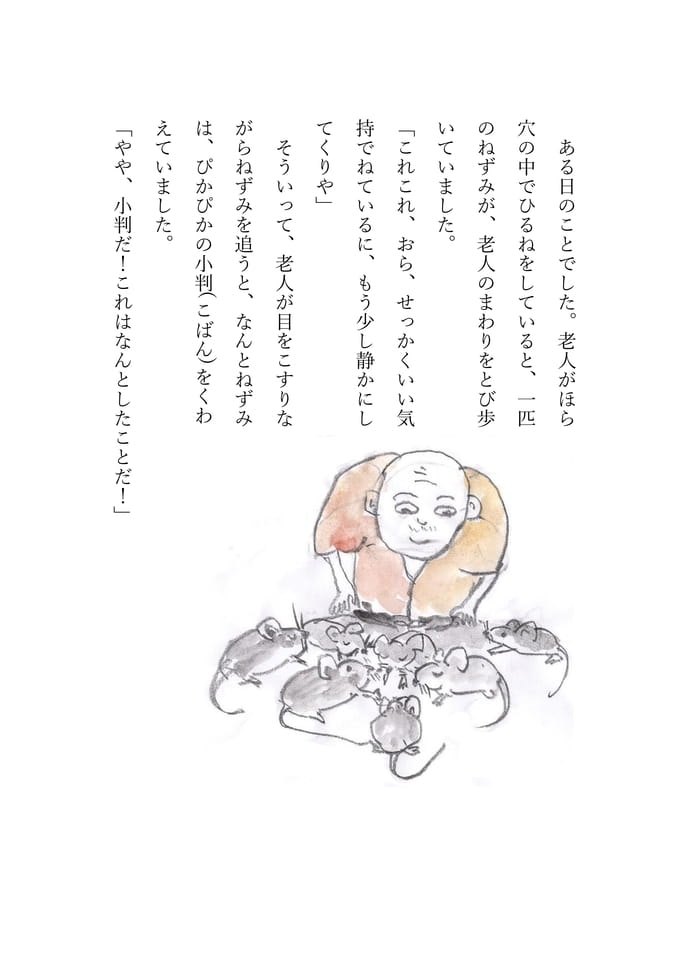 ある日のことでした。老人がほら
穴の中でひるねをしていると、一匹
のねずみが、老人のまわりをとび歩
いていました。
「これこれ、おら、せっかくいい気
持でねているに、もう少し静かにし
てくりや」
そういって、老人が目をこすりな
がらねずみを追うと、なんとねずみ
は、ぴかぴかの小判(こばん)をくわ
えていました。
「やや、小判だ！これはなんとしたことだ！」